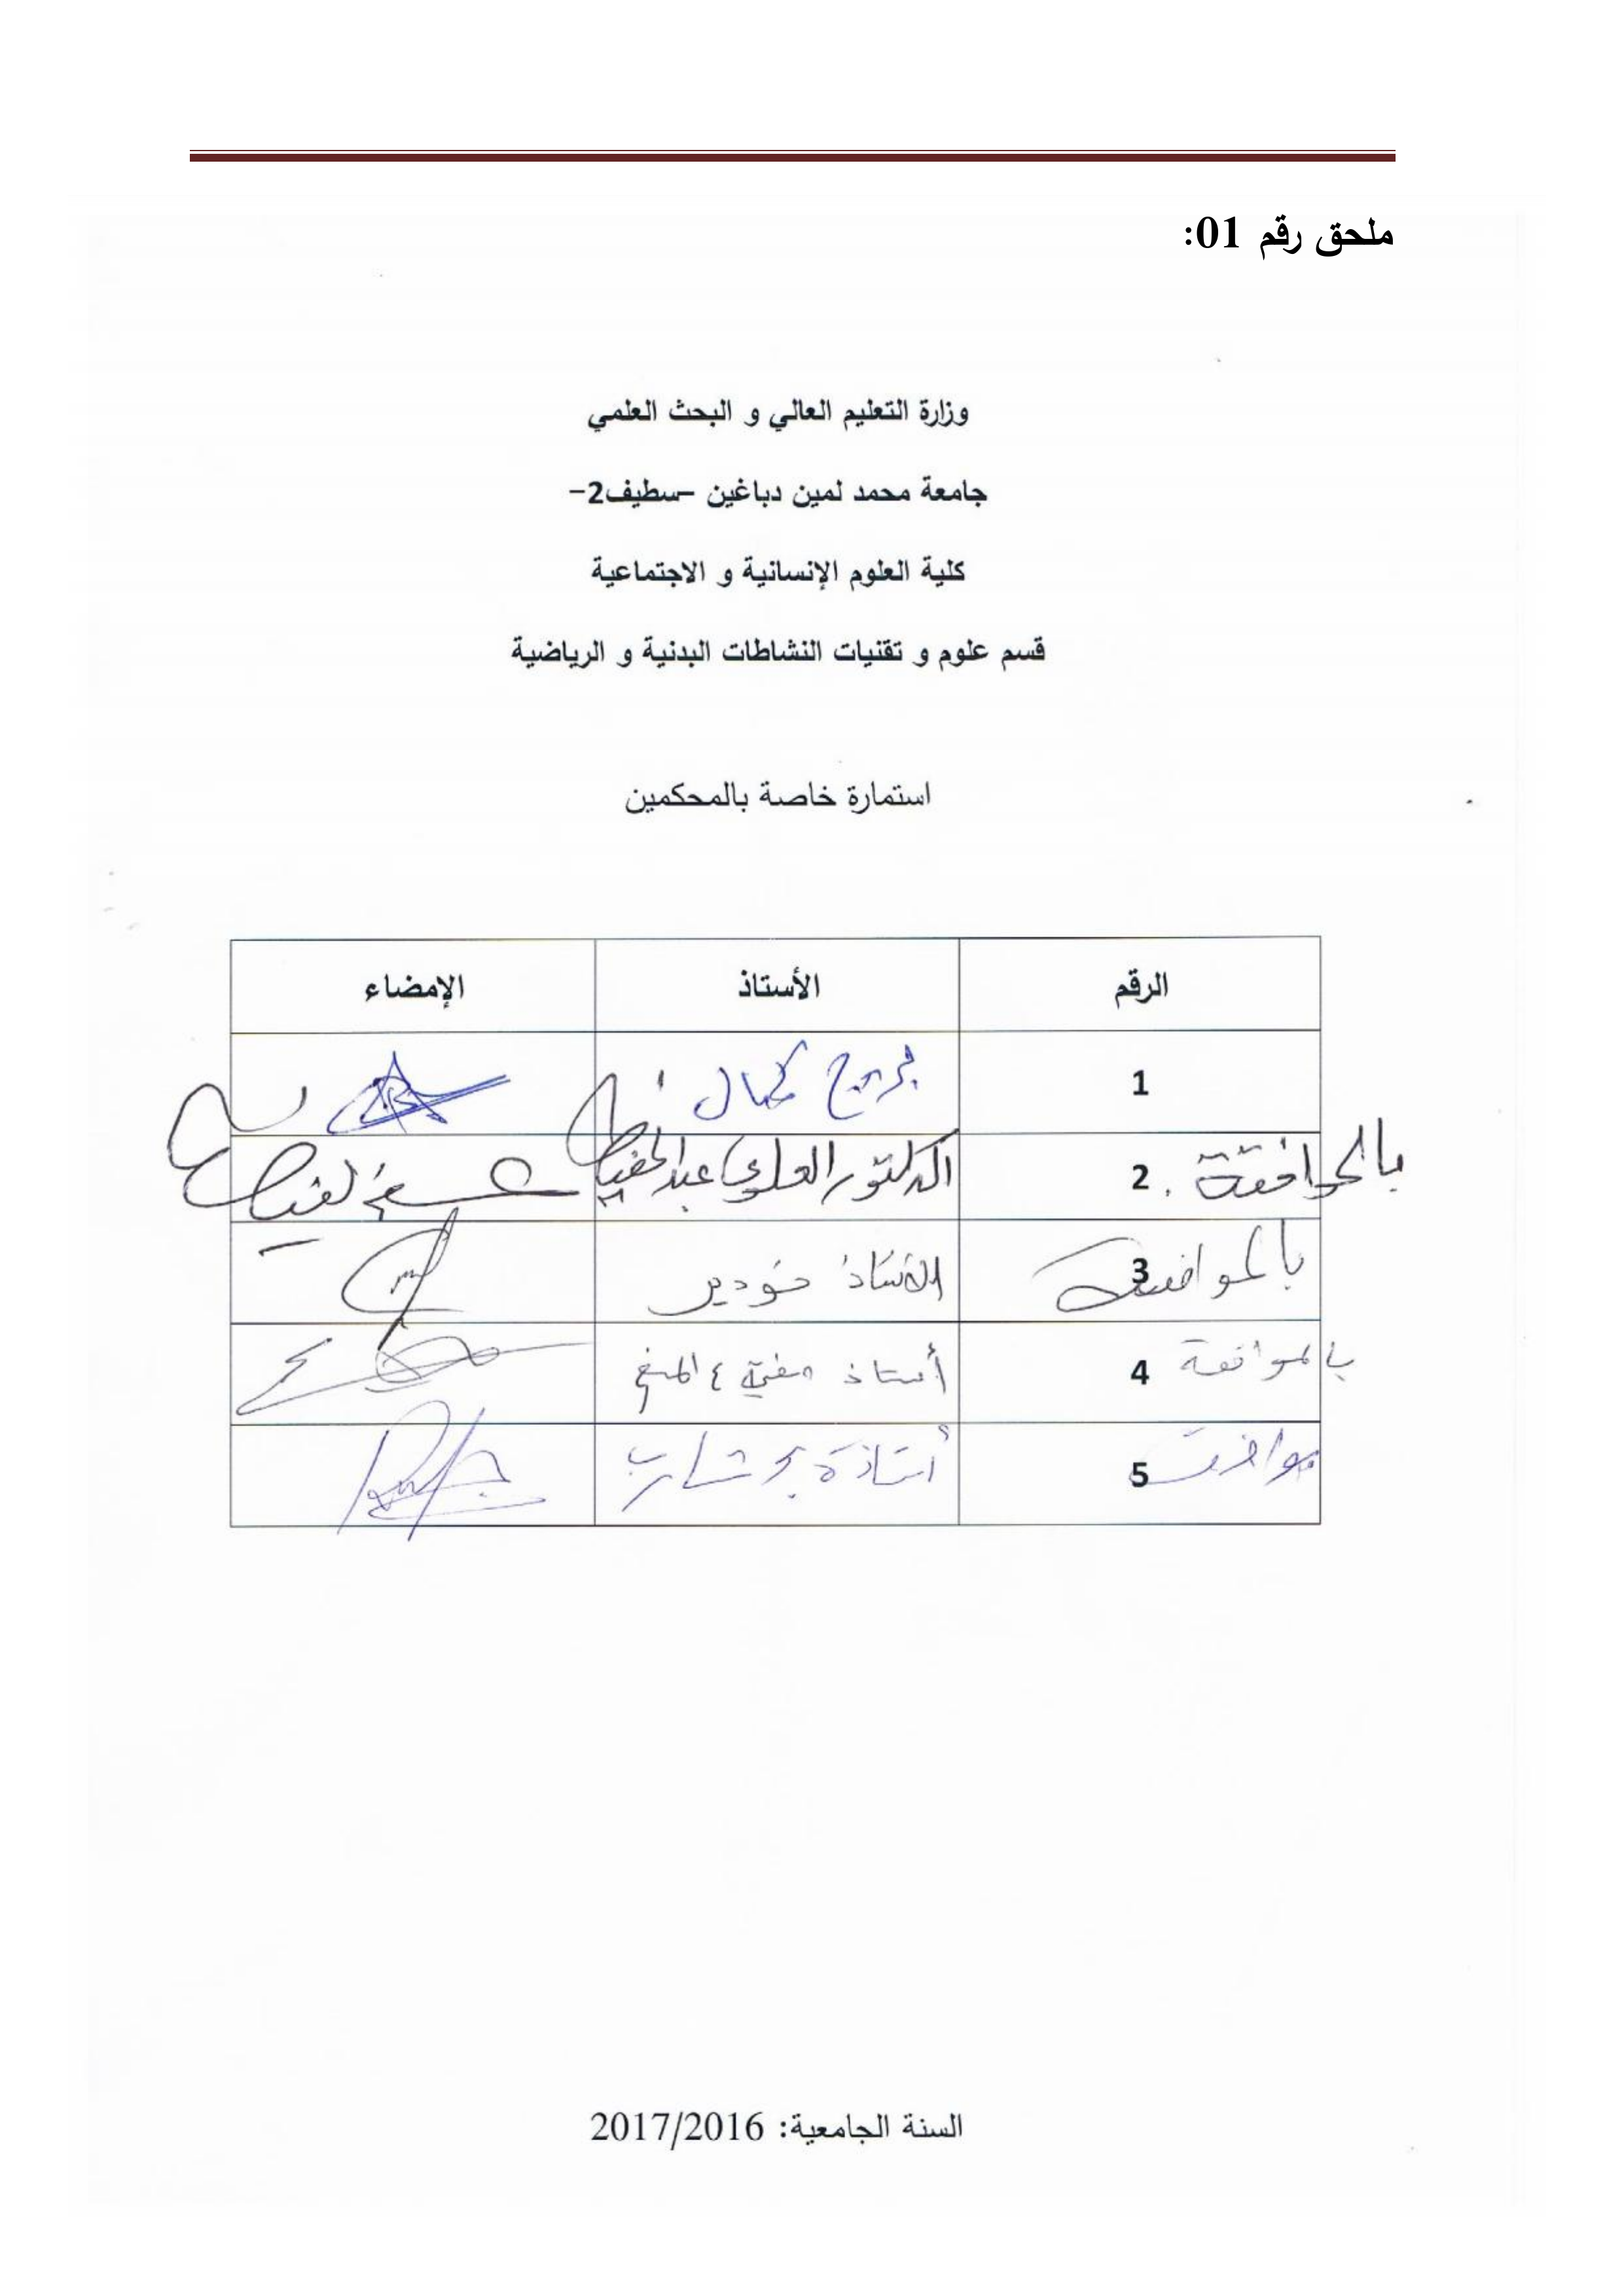 ملحق رقم 01:
وزارة التعليم العالي و البحث العلمي
جامعة محمد لمين دباغين –سطيف2–
كلية العلوم الإنسانية و الاجتماعية
قسم علوم و تقنيات النشاطات البدنية و الرياضية
استمارة خاصة بالمحكمين
الرقم الأستاذ الإمضاء
1 كمال
بالموافقة . 2 الدكتور العلوي عبد الحفيظ
بالموافقة 3 الأستاذ خودير
بالموافقة 4 أستاذ
موافق 5 أستاذة
السنة الجامعية: 2017/2016